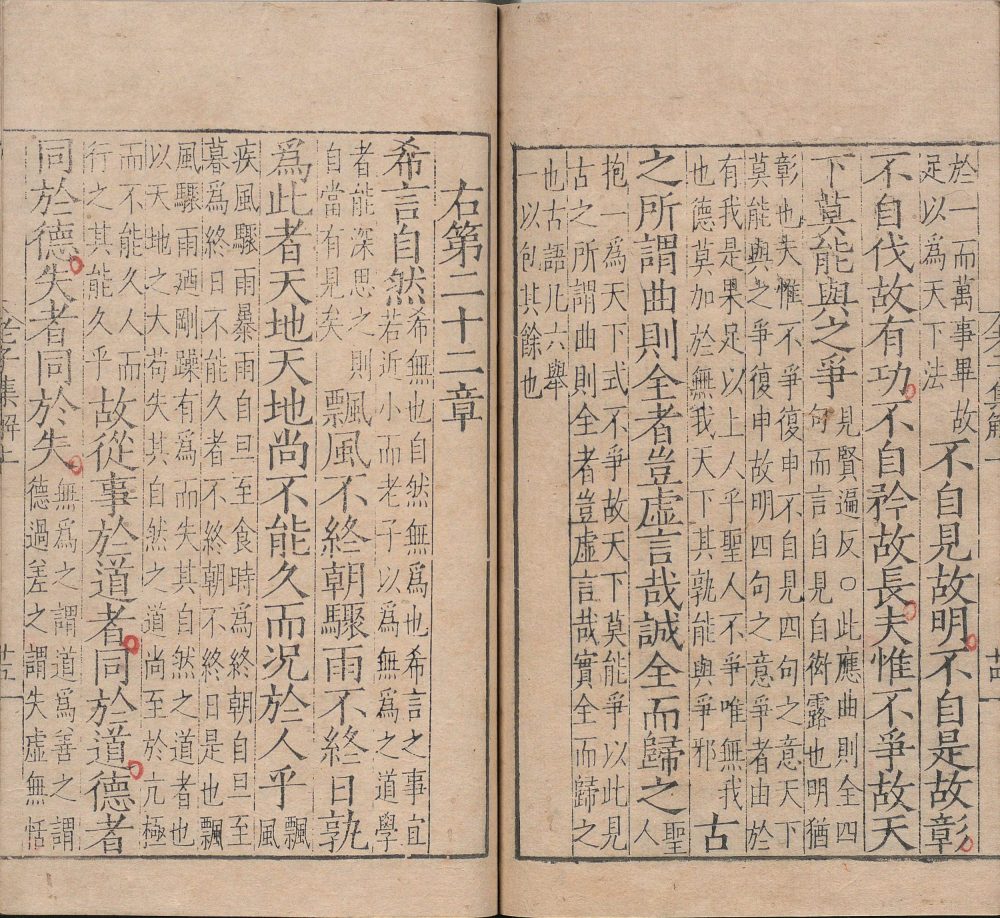 於一而萬事畢故
足以爲天下法
不自見故明不自是故彰
不自伐故有功不自矜故長夫惟不爭故天
下莫能與之爭
見賢遍反○此應曲則全四
句而言自見自衒露也明猶
彰也夫惟不爭復申不自見四句之意天下
莫能與之爭復申故明四句之意爭者由於
有我是果足以上人乎聖人不爭唯無我
也德莫加於無我天下其孰能與爭邪
古
之所謂曲則全者豈虛言哉誠全而歸之
聖
人
抱一爲天下式不爭故天下莫能爭以此見
古之所謂曲則全者豈虛言哉實全而歸之
也古語凡六舉
一以包其餘也
右第二十二章
希言自然
希無也自然無爲也希言之事宜
若近小而老子以爲無爲之道學
者能深思之則
自當有見矣
飄風不終朝驟雨不終日孰
爲此者天地天地尚不能久而況於人乎
飄
風
疾風驟雨暴雨自旦至食時爲終朝自旦至
暮爲終日不能久者不終朝不終日是也飄
風驟雨廼剛躁有爲而失其自然之道者也
以天地之大苟失其自然之道尚至於亢極
而不能久人而
行之其能久乎
故從事於道者同於道德者
同於德失者同於失
無爲之謂道爲善之謂
德過差之謂失虛無恬
老子集解上
廿五